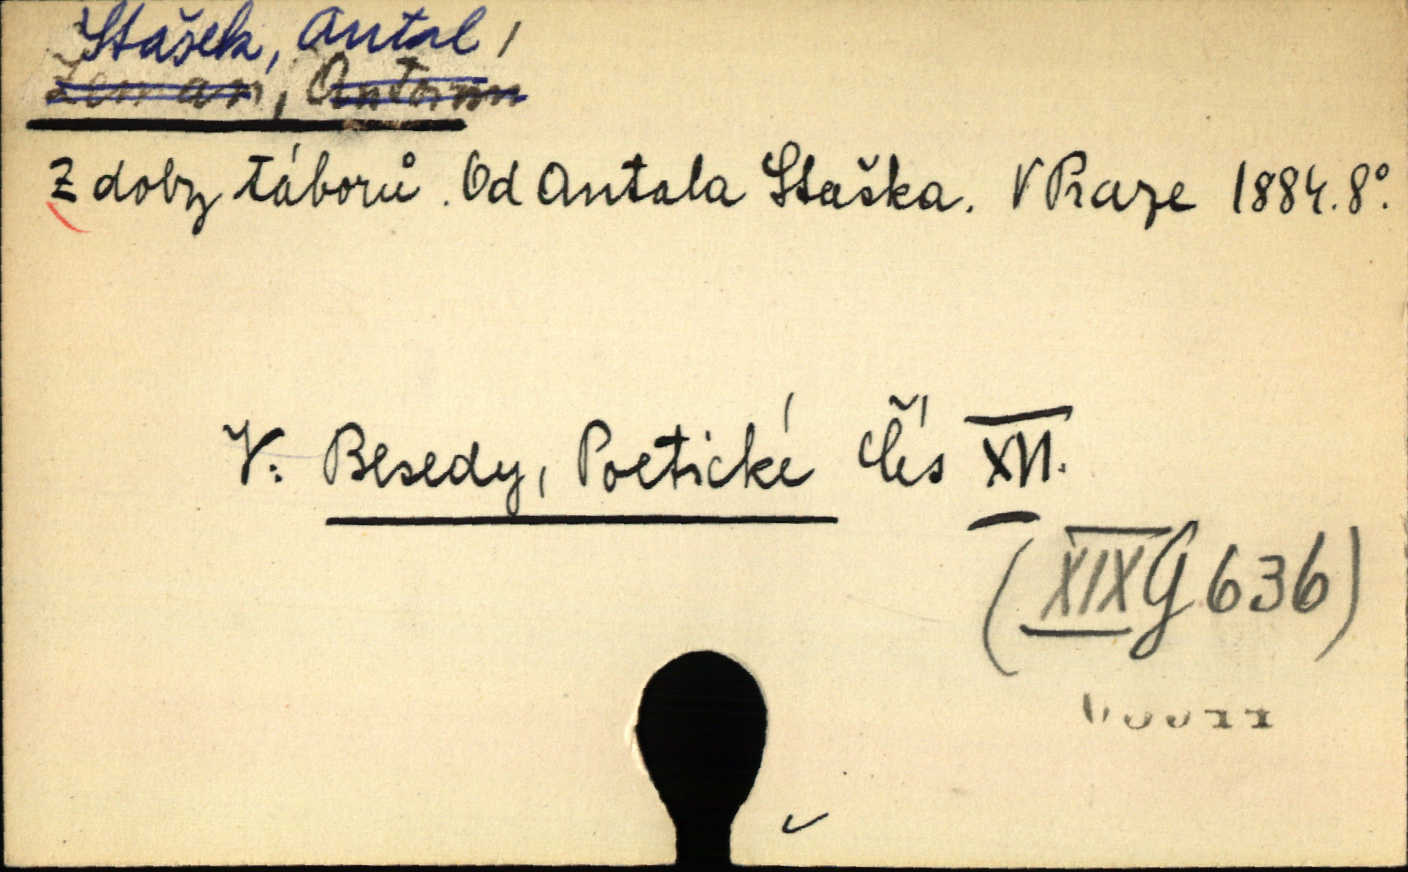 Stašek, Antal,
Zeman, Antonín
Z doby táborů. Od Antala Staška. V Praze 1884. 8°.
V: Besedy, Poetické čís XVI.
(XIX G 636)